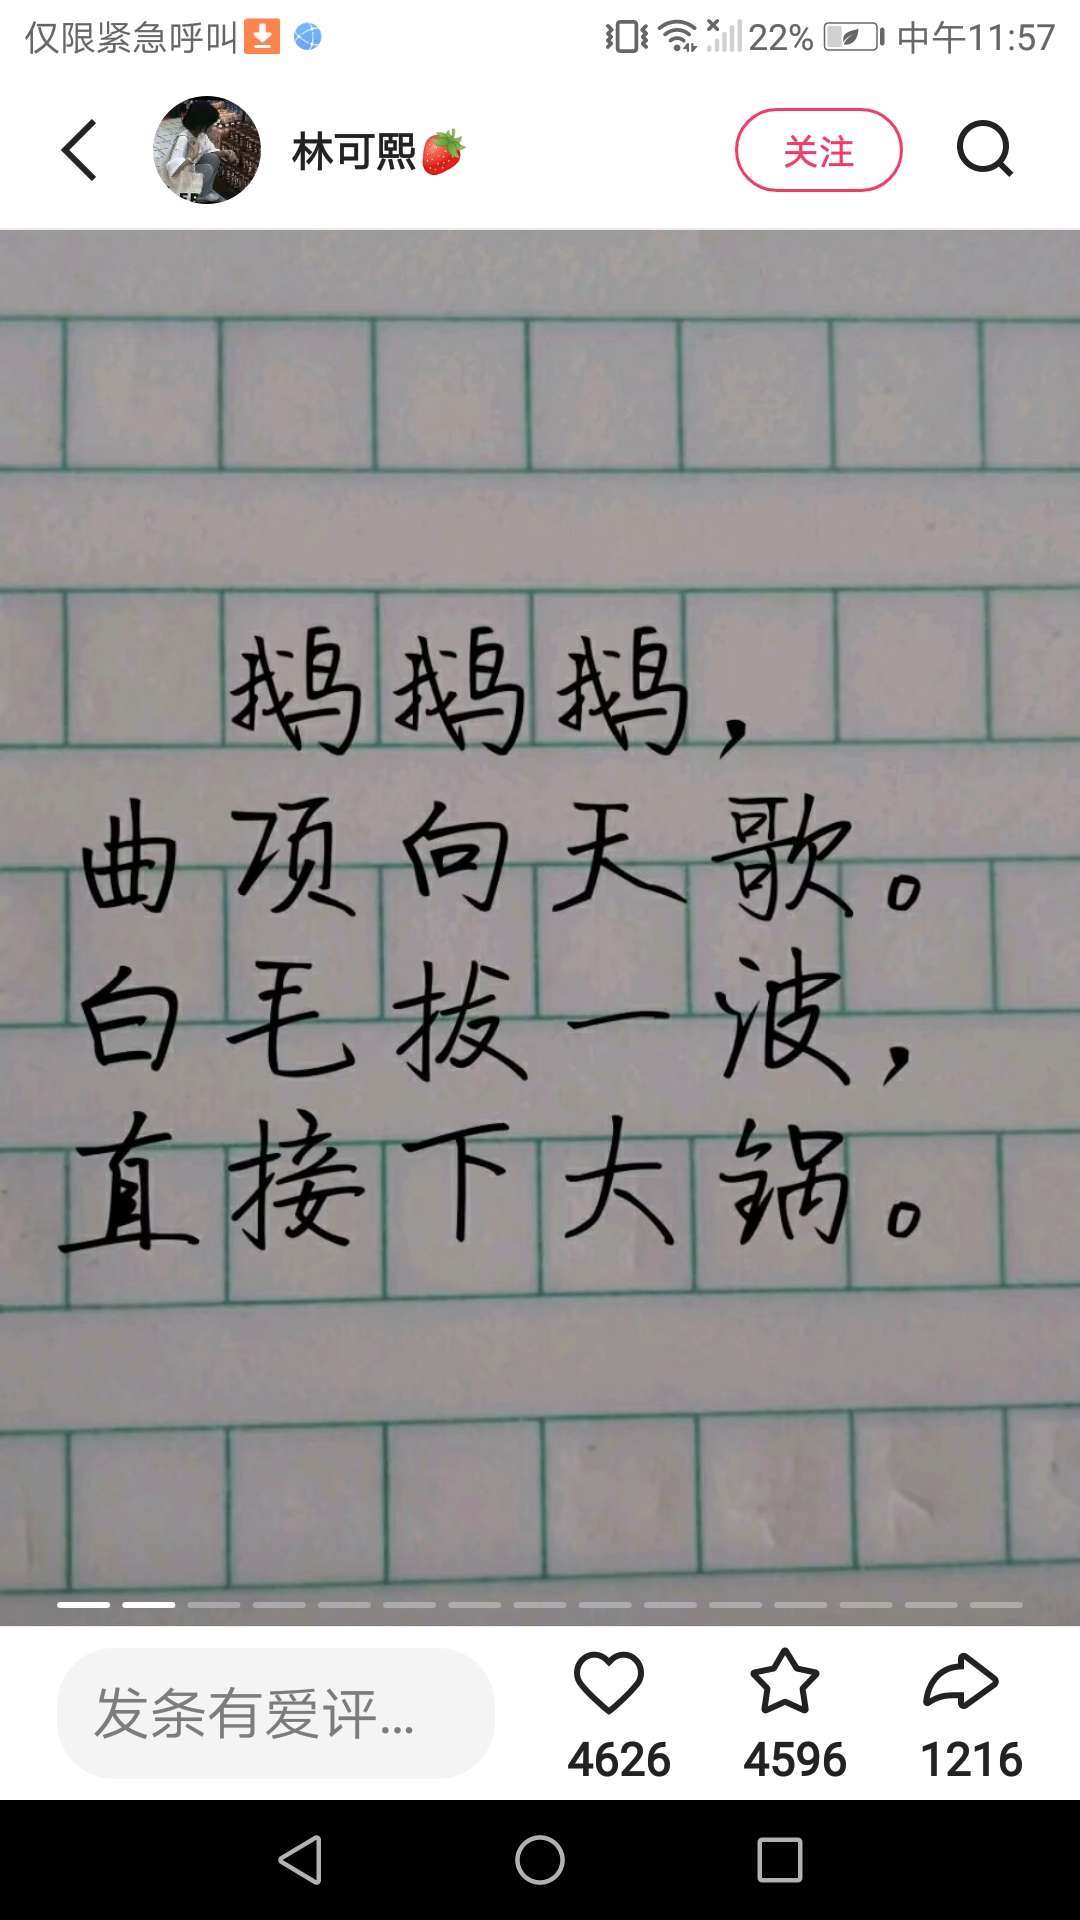 仅限紧急呼叫 22% 中午11:57
林可熙 关注
鹅鹅鹅，
曲项向天歌。
白毛拔一波，
直接下大锅。
发条有爱评...
4626 4596 1216